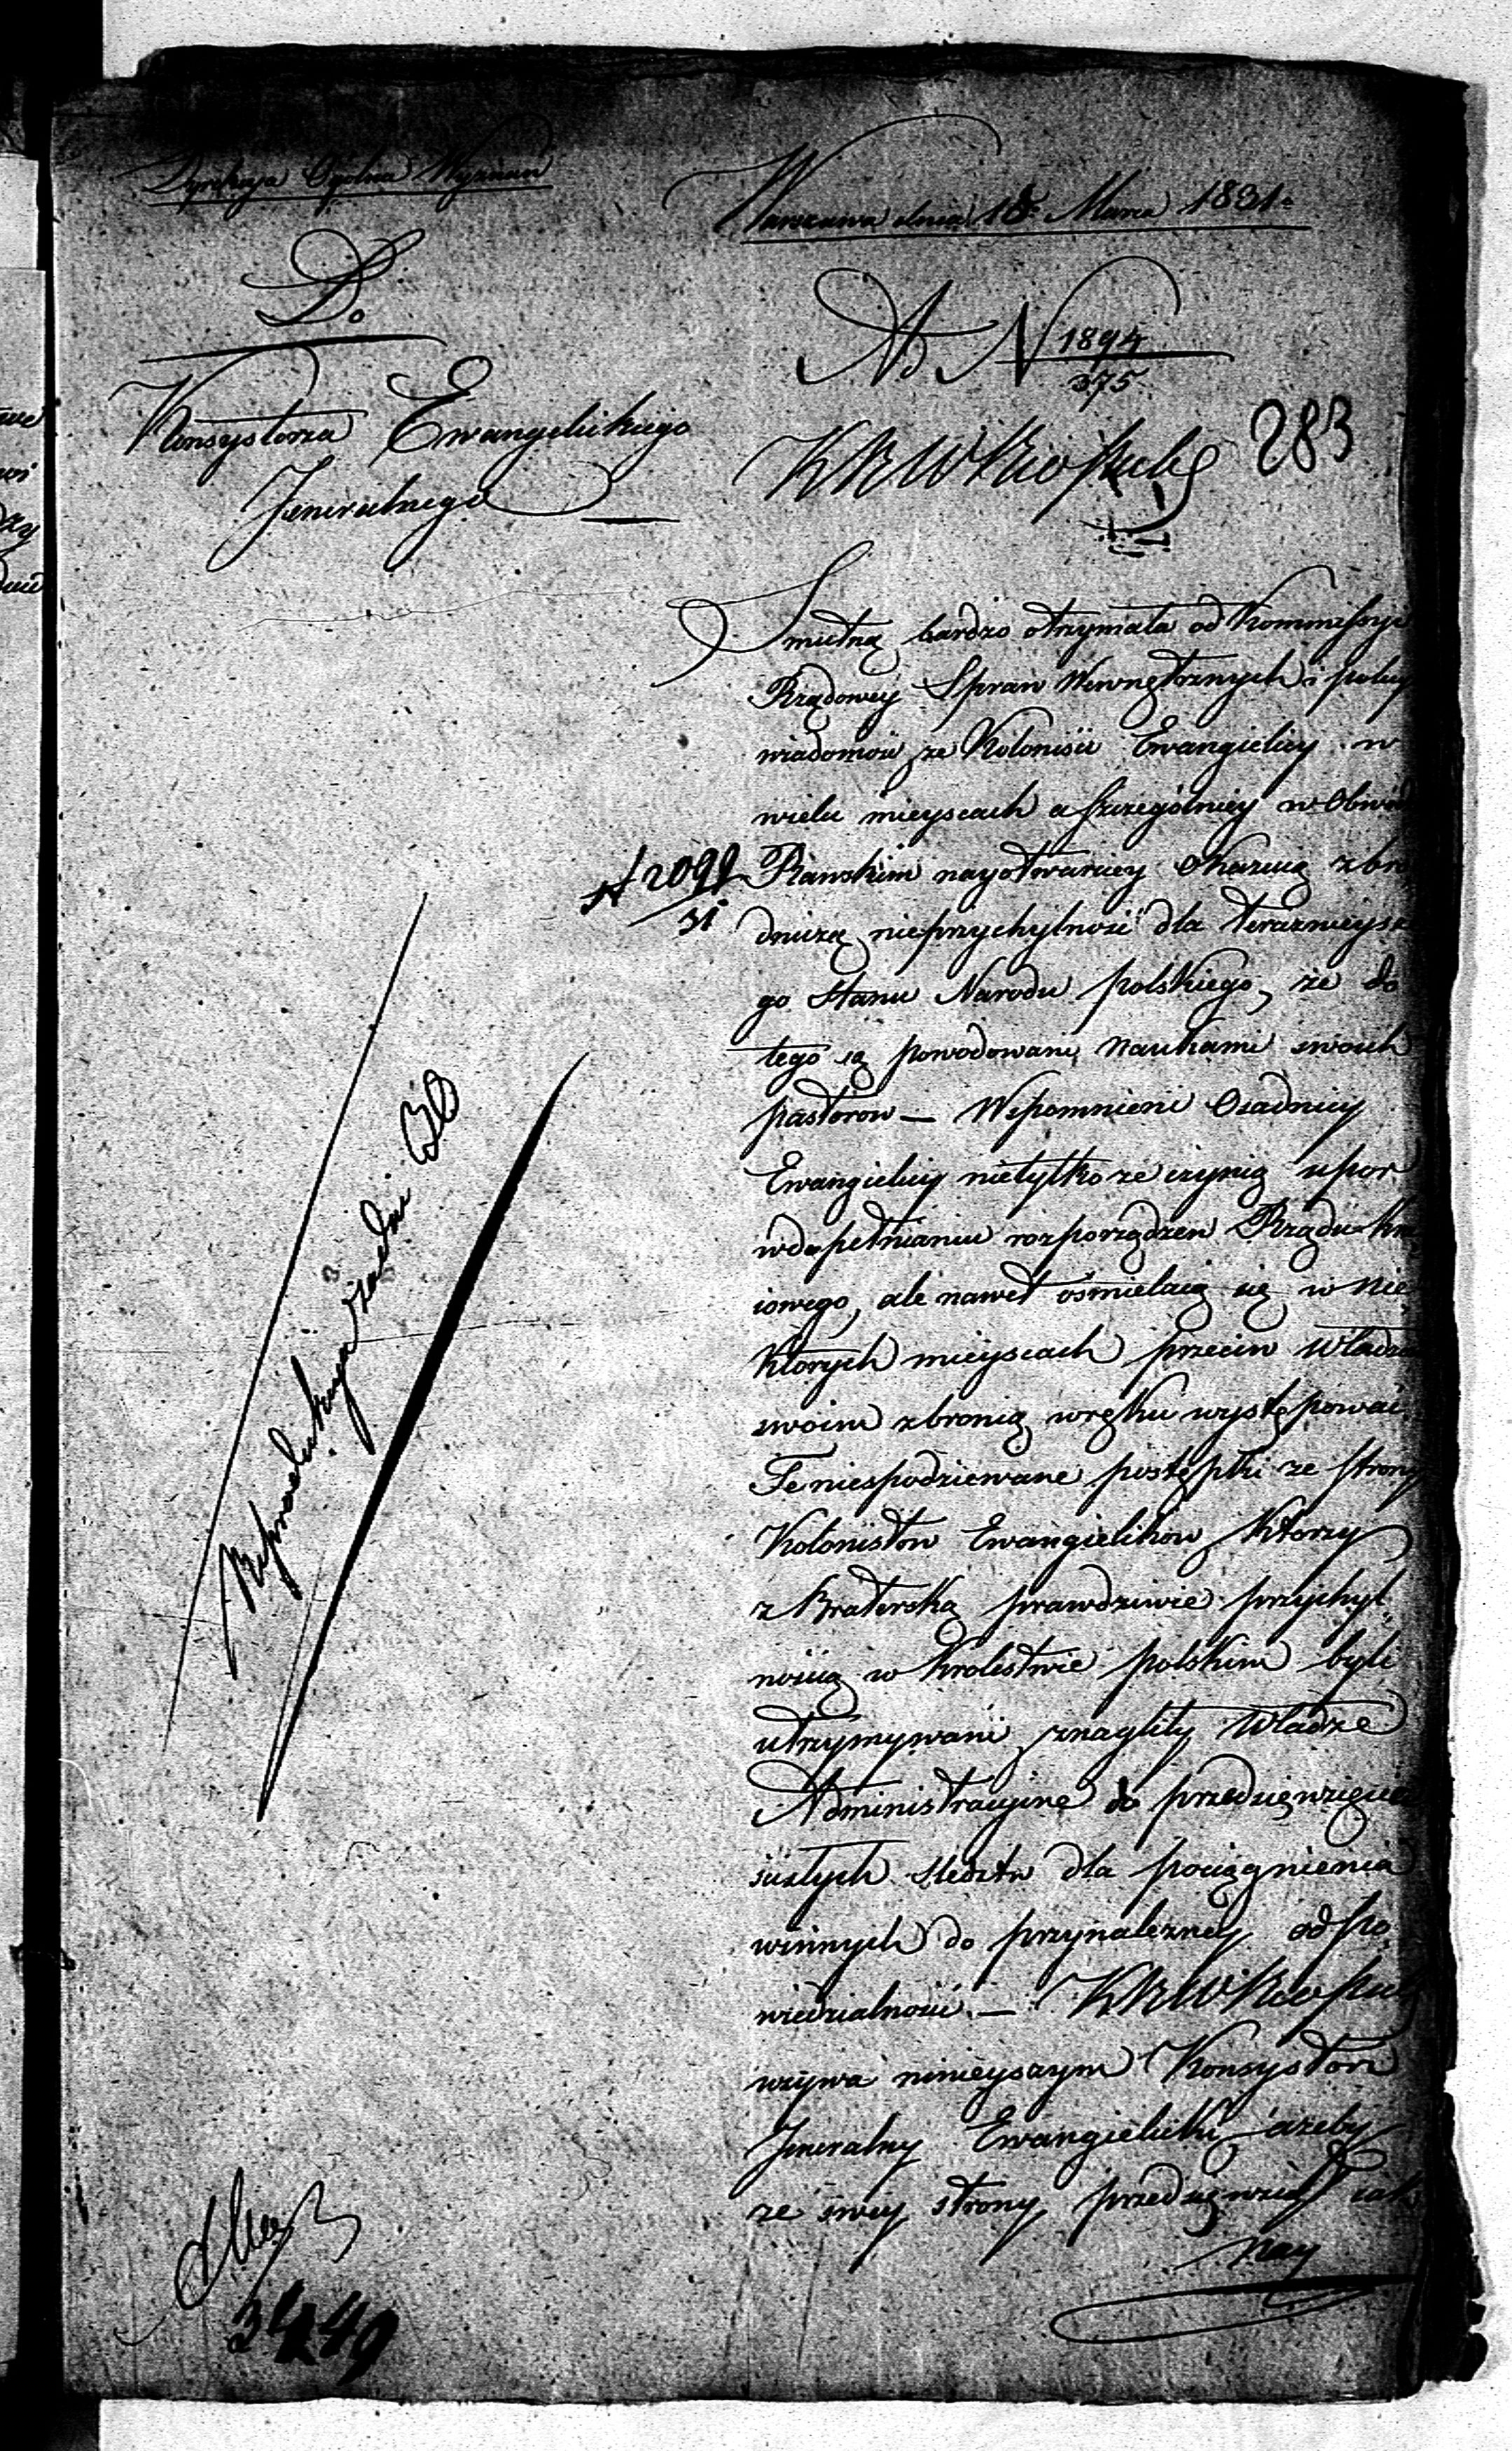 Dyrekcja Ogólna Wyznań
Warszawa dnia 18. Marca 1831.
Do
Konsystorza Ewangelickiego
Jeneralnego
Ad N 1894
375
283
K R W R i O P
Smutną bardzo otrzymała od Kommissyi
Rządowey Spraw Wewnętrznych i policyi
wiadomość że Koloniści Ewangielicy w
wielu mieyscach a szczególniey w Obwod
N 2099
31
Rawskim nayotwarciey okazuią zbro
dniczą nieprzychylność dla teraznieysze
go stanu Narodu polskiego, że do
tego są powodowani naukami swoich
pastorow — Wspomnieni Osadnicy
Ewangielicy nietylko ze czynią upor
w dopełnianiu rozporządzen Rządu Kra
iowego, ale nawet osmielaią się w nie
ktorych mieyscach przeciw Władzom
swoim z bronią w ręku występować.
Te niespodziewane postępki ze strony
Kolonistow Ewangielikow ktorzy
z Braterską prawdziwie przychyl
nością w Krolestwie polskim byli
utrzymywani znagliły Władze
Administracyine do przedsięwzięcia
scisłych sledztw dla pociągnienia
winnych do przynalezney odpo
wiedzialności. — K R W R i O P
wzywa ninieyszym Konsystorz
Jeneralny Ewangielicki ażeby
ze swey strony przedsięwziął iak
nay
34249